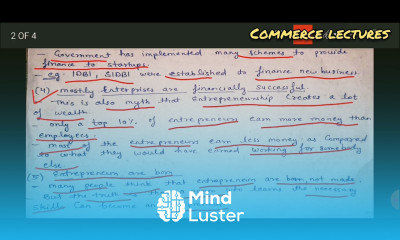 2 OF 4
COMMERCE LECTURES
- Government has implemented many schemes to provide
finance to startups.
- eg IDBI, SIDBI were established to finance new business.
(4) mostly Enterprises are financially successful
- This is also myth that entrepreneurship creates a lot
of wealth.
- only a top 10% of entrepreneurs earn more money than
employees.
- most of the entrepreneurs earn less money as compared
to what they would have earned working for somebody
else.
(5) Entrepreneurs are born
- many people think that entrepreneurs are born, not made.
But the truth is the necessary
skills can
Mind
Luster